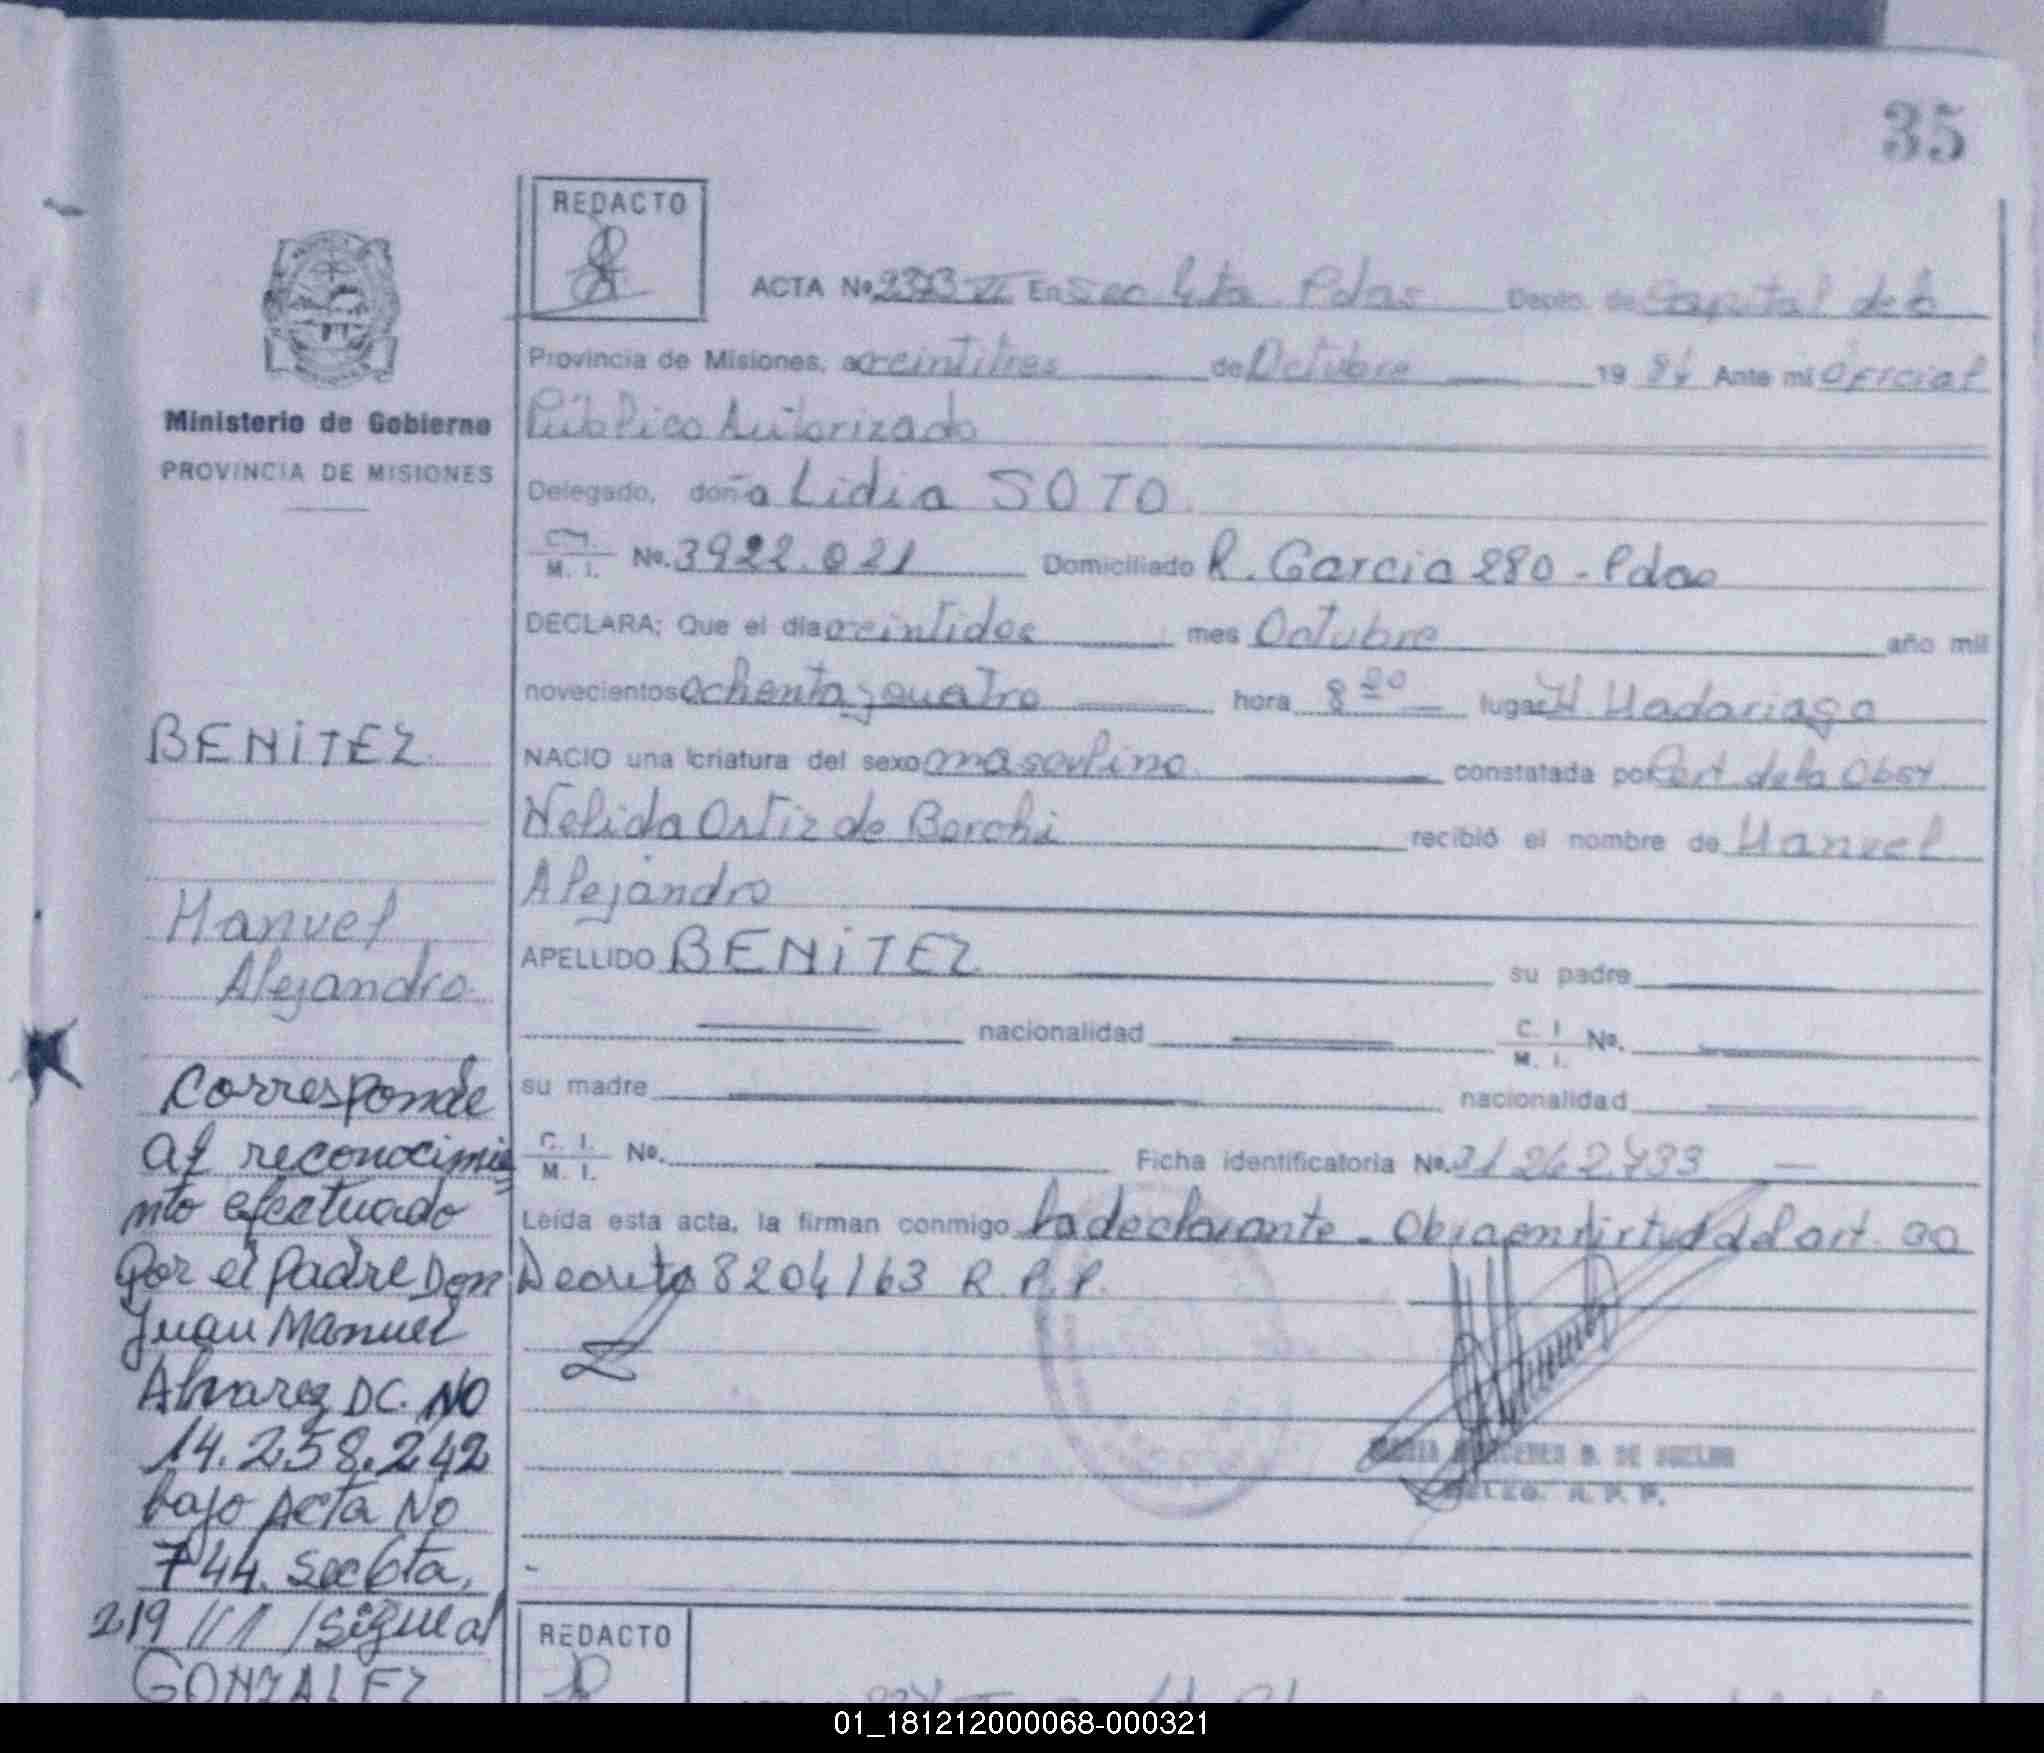 35
REDACTO
ACTA No 2393 VI En Sec 4ta Pdas Depto. de Capital de la
Provincia de Misiones, a veintitres de Octubre 19 84 Ante mi Oficial
Público Autorizado
Ministerio de Gobierno
PROVINCIA DE MISIONES
Delegado, doña Lidia SOTO
C.I. M. I. No. 3922.021 Domiciliado R. Garcia 280 - Pdas
DECLARA; Que el dia veintidos mes Octubre año mil
novecientos ochenta y cuatro hora 8 20 lugar H Madariaga
NACIO una criatura del sexo masculino constatada por Cert de la Obst
Nelida Ortiz de Borchi recibió el nombre de Manuel
Alejandro
APELLIDO BENiTEZ su padre
nacionalidad C. I. M. I. No.
su madre nacionalidad
C. I. M. I. No. Ficha identificatoria No. 31 262 733
Leída esta acta, la firman conmigo la declarante. Obra en virtud del art. 30
Decreto 8204/63 R.P.P.
DE
R. P. P.
BENiTEZ
Manuel
Alejandro
Corresponde
al reconocimie
nto efectuado
por el padre Don
Juan Manuel
Alvarez DC. NO
14.258.242
bajo Acta No
744. Sec 6ta,
219 /// /sigue al
REDACTO
GONZALEZ
01_181212000068-000321